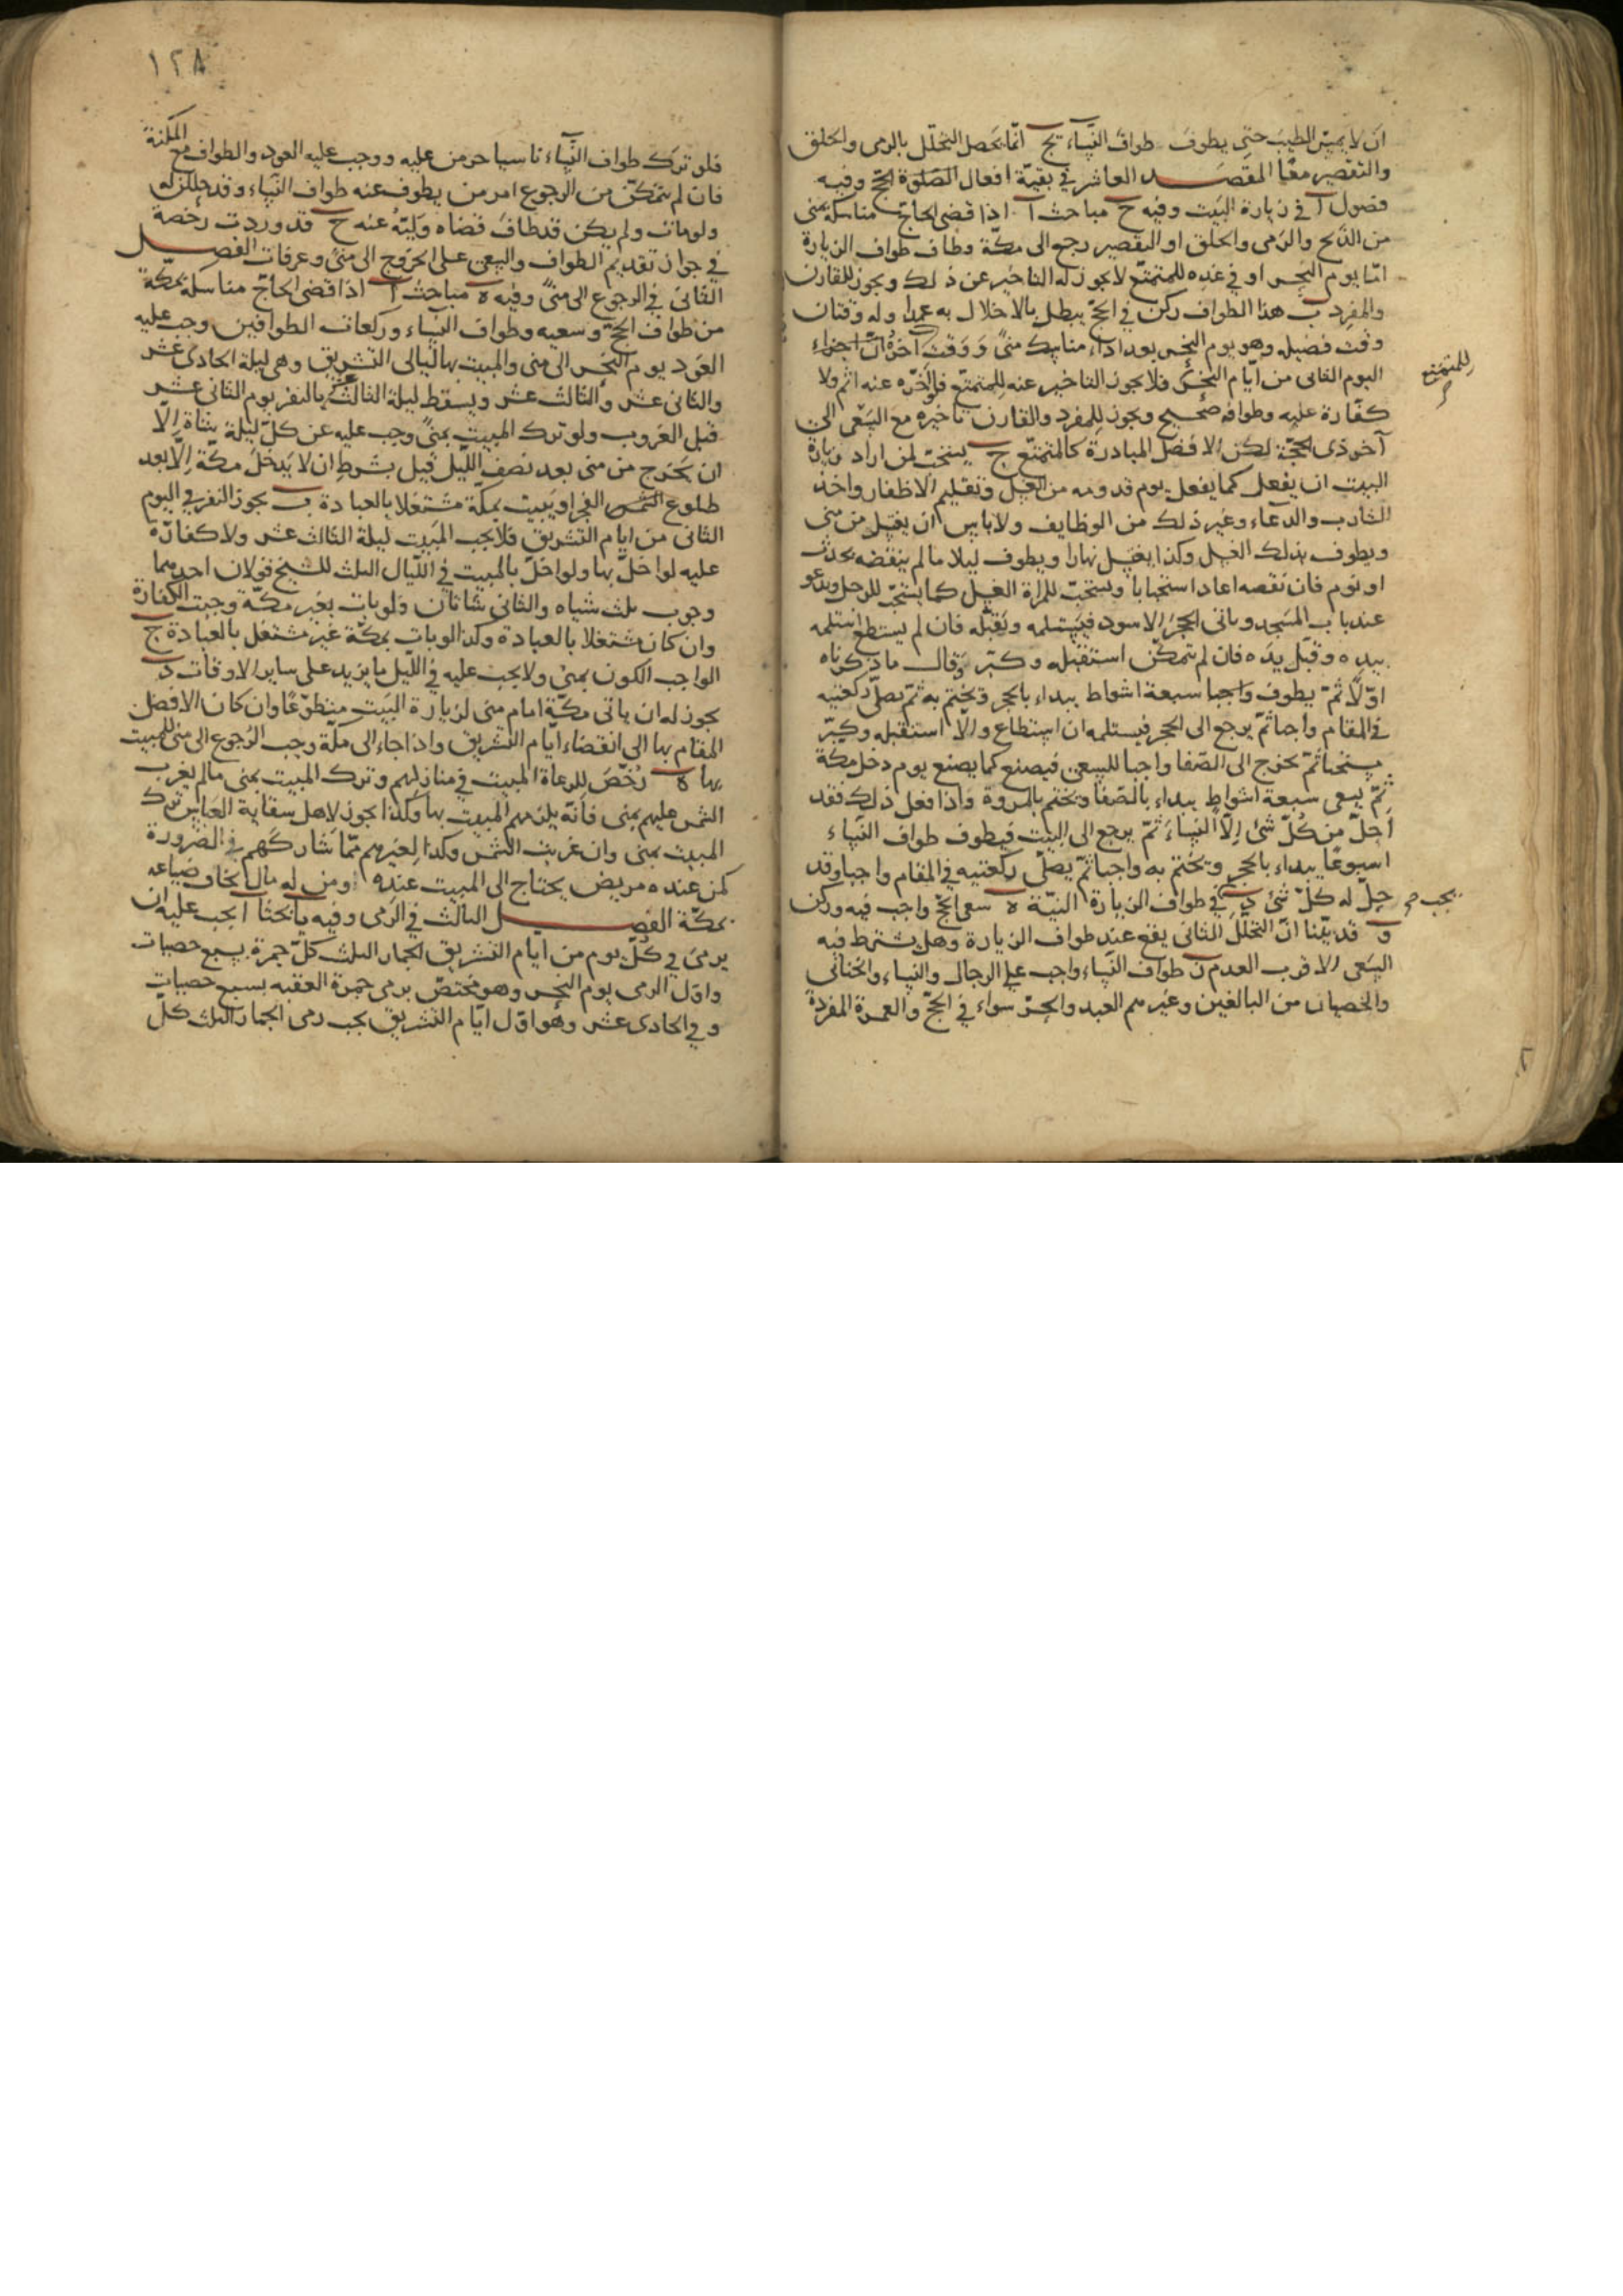 ان لا يمسّ الطيب حتى يطوف طواف النساء يج انما يحصل التحلل بالرمى والحلق
والتقصير معًا المقصد العاشر في بقية افعال الحج وفيه
فصول آ في زيارة البيت وفيه ح مباحث آ اذا قضى الحاج مناسكه بمنى
من الذبح والرمى والحلق او التقصير رجع الى مكة وطاف طواف الزيارة
امّا يوم النحر او في غده للمتمتع لا يجوز له التاخير عن ذلك ويجوز للقارن
والمفرد ب هذا الطواف ركن في الحج يبطل بالاخلال به عمدا وله وقتان
وقت فضيله وهو يوم النحر بعد اداء مناسك منى ووقت اجزاء
اليوم الثانى من ايّام النحر فلا يجوز التاخير عنه للمتمتع فلو اخّره عنه اثم ولا
للمتمتع
كفّارة عليه وطوافه صحيح ويجوز للمفرد والقارن تاخيره مع السعى الى
آخر ذى الحجّة لكن الافضل المبادرة كالمتمتع ج يستحبّ لمن اراد زيارة
البيت ان يفعل كما يفعل يوم قدومه من الغسل وتقليم الاظفار واخذ
الشارب والدعاء وغير ذلك من الوظايف ولا باس ان يغتسل من منى
ويطوف بذلك الغسل وكذا يغتسل نهارا ويطوف ليلا ما لم ينقضه بحدث
او نوم فان نقصه اعاد استحبابا ويستحبّ للمراة الغسل كما يستحبّ للرجل ويدعو
عند باب المسجد وياتى الحجر الاسود فيستلمه ويقبّله فان لم يستطع استلمه
بيده وقبّل يده فان لم يتمكّن استقبله وكبّر وقال ما ذكرناه
اوّلًا ثمّ يطوف واجبا سبعة اشواط يبداء بالحجر ويختم به ثمّ يصلّى ركعتيه
في المقام واجبا ثمّ يرجع الى الحجر فيستلمه ان استطاع والّا استقبله وكبّر
مستحبا ثمّ يخرج الى الصّفا واجبا للسعى فيصنع كما يصنع يوم دخل مكة
ثمّ يسعى سبعة اشواط يبداء بالصّفا ويختم بالمروة واذا فعل ذلك فقد
احلّ من كلّ شئ الّا النساء ثمّ يرجع الى البيت فيطوف طواف النساء
اسبوعًا يبداء بالحجر ويختم به واجبا ثمّ يصلّى ركعتيه في المقام واجبا وقد
حلّ له كلّ شئ د في طواف الزيارة النيّة ه سعى الحج واجب فيه وركن
يجب
و قد بيّنا انّ التحلّل الثانى يقع عند طواف الزيارة وهل يشترط فيه
السعى الاقرب العدم ز طواف النساء واجب على الرجال والنساء والخناثى
والخصيان من البالغين وغيرهم العبد والحرّ سواء في الحجّ والعمرة المفردة
١٢٨
فلو ترك طواف النساء ناسيا حرمن عليه ووجب عليه العود والطواف مع المكنة
فان لم يتمكّن من الرجوع امر من يطوف عنه طواف النساء وقد حللن له
ولو مات ولم يكن قد طاف قضاه وليّه عنه ح قد وردت رخصة
في جواز تقديم الطواف والسعى على الخروج الى منى وعرفات الفصل
الثانى في الرجوع الى منى وفيه ه مباحث آ اذا قضى الحاجّ مناسكه بمكّة
من طواف الحجّ وسعيه وطواف النساء وركعات الطوافين وجب عليه
العود يوم النحر الى منى والمبيت بها ليالى التشريق وهى ليلة الحادى عشر
والثانى عشر والثالث عشر ويسقط ليلة الثالث بالنفر يوم الثانى عشر
قبل الغروب ولو ترك المبيت بمنى وجب عليه عن كلّ ليلة شاة الّا
ان يخرج من منى بعد نصف الليل قيل بشرط ان لا يدخل مكّة الّا بعد
طلوع الفجر او يبيت بمكّة مشتغلا بالعبادة ب يجوز النفر في اليوم
الثانى من ايام التشريق فلا يجب المبيت ليلة الثالث عشر ولا كفارة
عليه لو اخلّ بها ولو اخلّ بالمبيت في الليال الثلث للشيخ قولان احدهما
وجوب ثلث شياه والثانى شاتان ولو بات بغير مكّة وجبت الكفارة
وان كان مشتغلا بالعبادة وكذا لو بات بمكّة غير مشتغل بالعبادة ج
الواجب الكون بمنى ولا يجب عليه في الليل ما يزيد على ساير الاوقات د
يجوز له ان ياتى مكّة امام منى لزيارة البيت متطوّعًا وان كان الافضل
المقام بها الى انقضاء ايّام التشريق واذا جاء الى مكّة وجب الرجوع الى منى للمبيت
بها ه رُخّص للرعاة المبيت في منازلهم وترك المبيت بمنى ما لم يغرب
الشمس عليهم بمنى فانّه يلزمهم المبيت بها وكذا يجوز لاهل سقاية العبّاس ترك
المبيت بمنى وان غربت الشمس وكذا لغيرهم ممّا شاركهم في الضرورة
كمن عنده مريض يحتاج الى المبيت عنده ومن له مال يخاف ضياعه
بمكّة الفصل الثالث في الرمى وفيه يا بحثا آ يجب عليه ان
يرمى في كلّ يوم من ايام التشريق الجمار الثلث كلّ جمرة بسبع حصيات
واوّل الرمى يوم النحر وهو مختصّ برمى جمرة العقبه بسبع حصيات
وفي الحادى عشر وهو اوّل ايّام التشريق يجب رمى الجمار الثلث كلّ